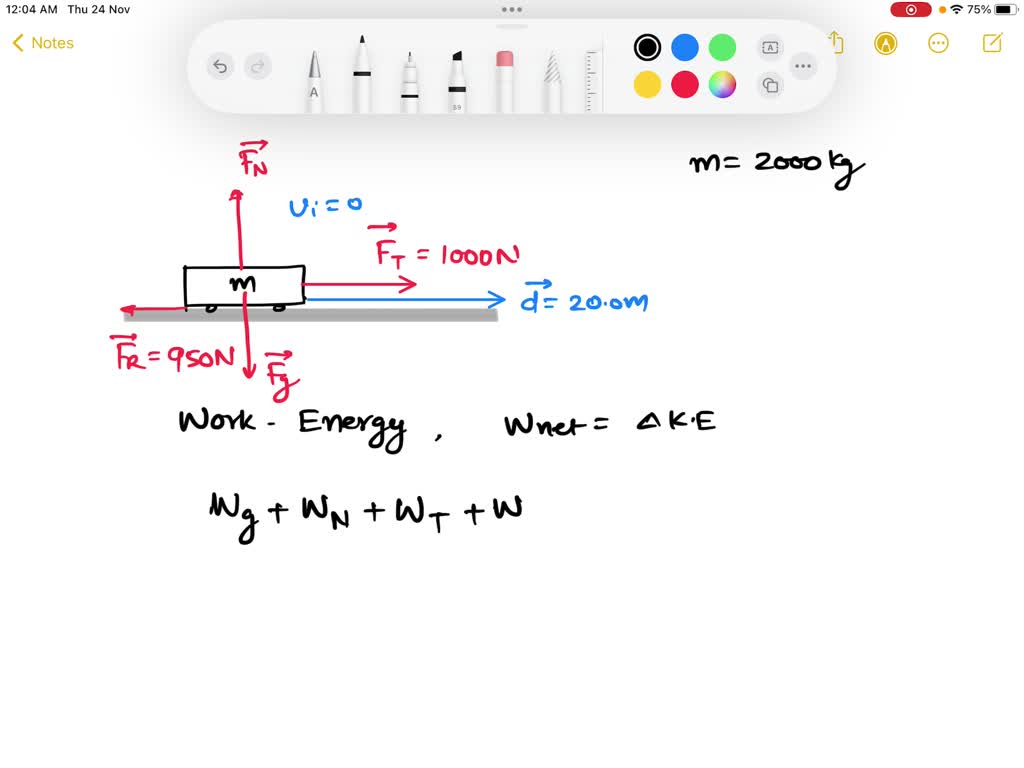 12:04 AM Thu 24 Nov
75%
Notes
A
59
A
A
F_N
m= 2000kg
υi = 0
F_T = 1000N
m
d = 20.0m
F_R = 950N
F_g
Work - Energy , Wnet = ΔK.E
W_g + W_N + W_T + W